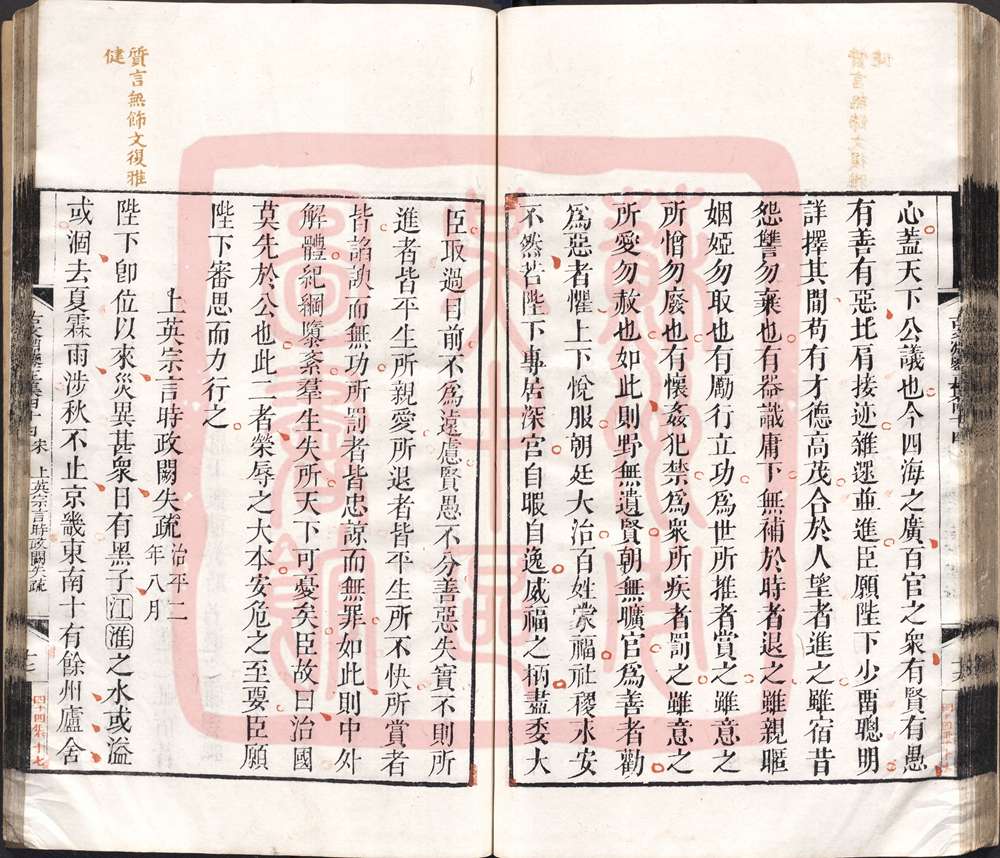 心蓋天下公議也今四海之廣百官之衆有賢有愚
有善有惡比肩接迹雜遝並進臣願陛下少畱聰明
詳擇其間苟有才德高茂合於人望者進之雖宿昔
怨讐勿棄也有器識庸下無補於時者退之雖親暱
姻婭勿取也有勵行立功爲世所推者賞之雖意之
所憎勿廢也有懷姦犯禁爲衆所疾者罰之雖意之
所愛勿赦也如此則野無遺賢朝無曠官爲善者勸
爲惡者懼上下悅服朝廷大治百姓蒙福社稷永安
不然若陛下專居深宮自暇自逸威福之柄盡委大
臣取過目前不爲遠慮賢愚不分善惡失實不則所
進者皆平生所親愛所退者皆平生所不快所賞者
皆諂諛而無功所罰者皆忠諒而無罪如此則中外
解體紀綱隳紊羣生失所天下可憂矣臣故曰治國
莫先於公也此二者榮辱之大本安危之至要臣願
陛下審思而力行之
上英宗言時政闕失疏 治平二年八月
陛下卽位以來災異甚衆日有黑子江淮之水或溢
或涸去夏霖雨涉秋不止京畿東南十有餘州廬舍
質言無飾文復雅
健
宋 上英宗言時政闕失疏
四十四集十七